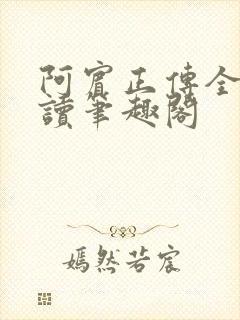 阿賓正傳全
讀筆趣閣
嫣然若宸